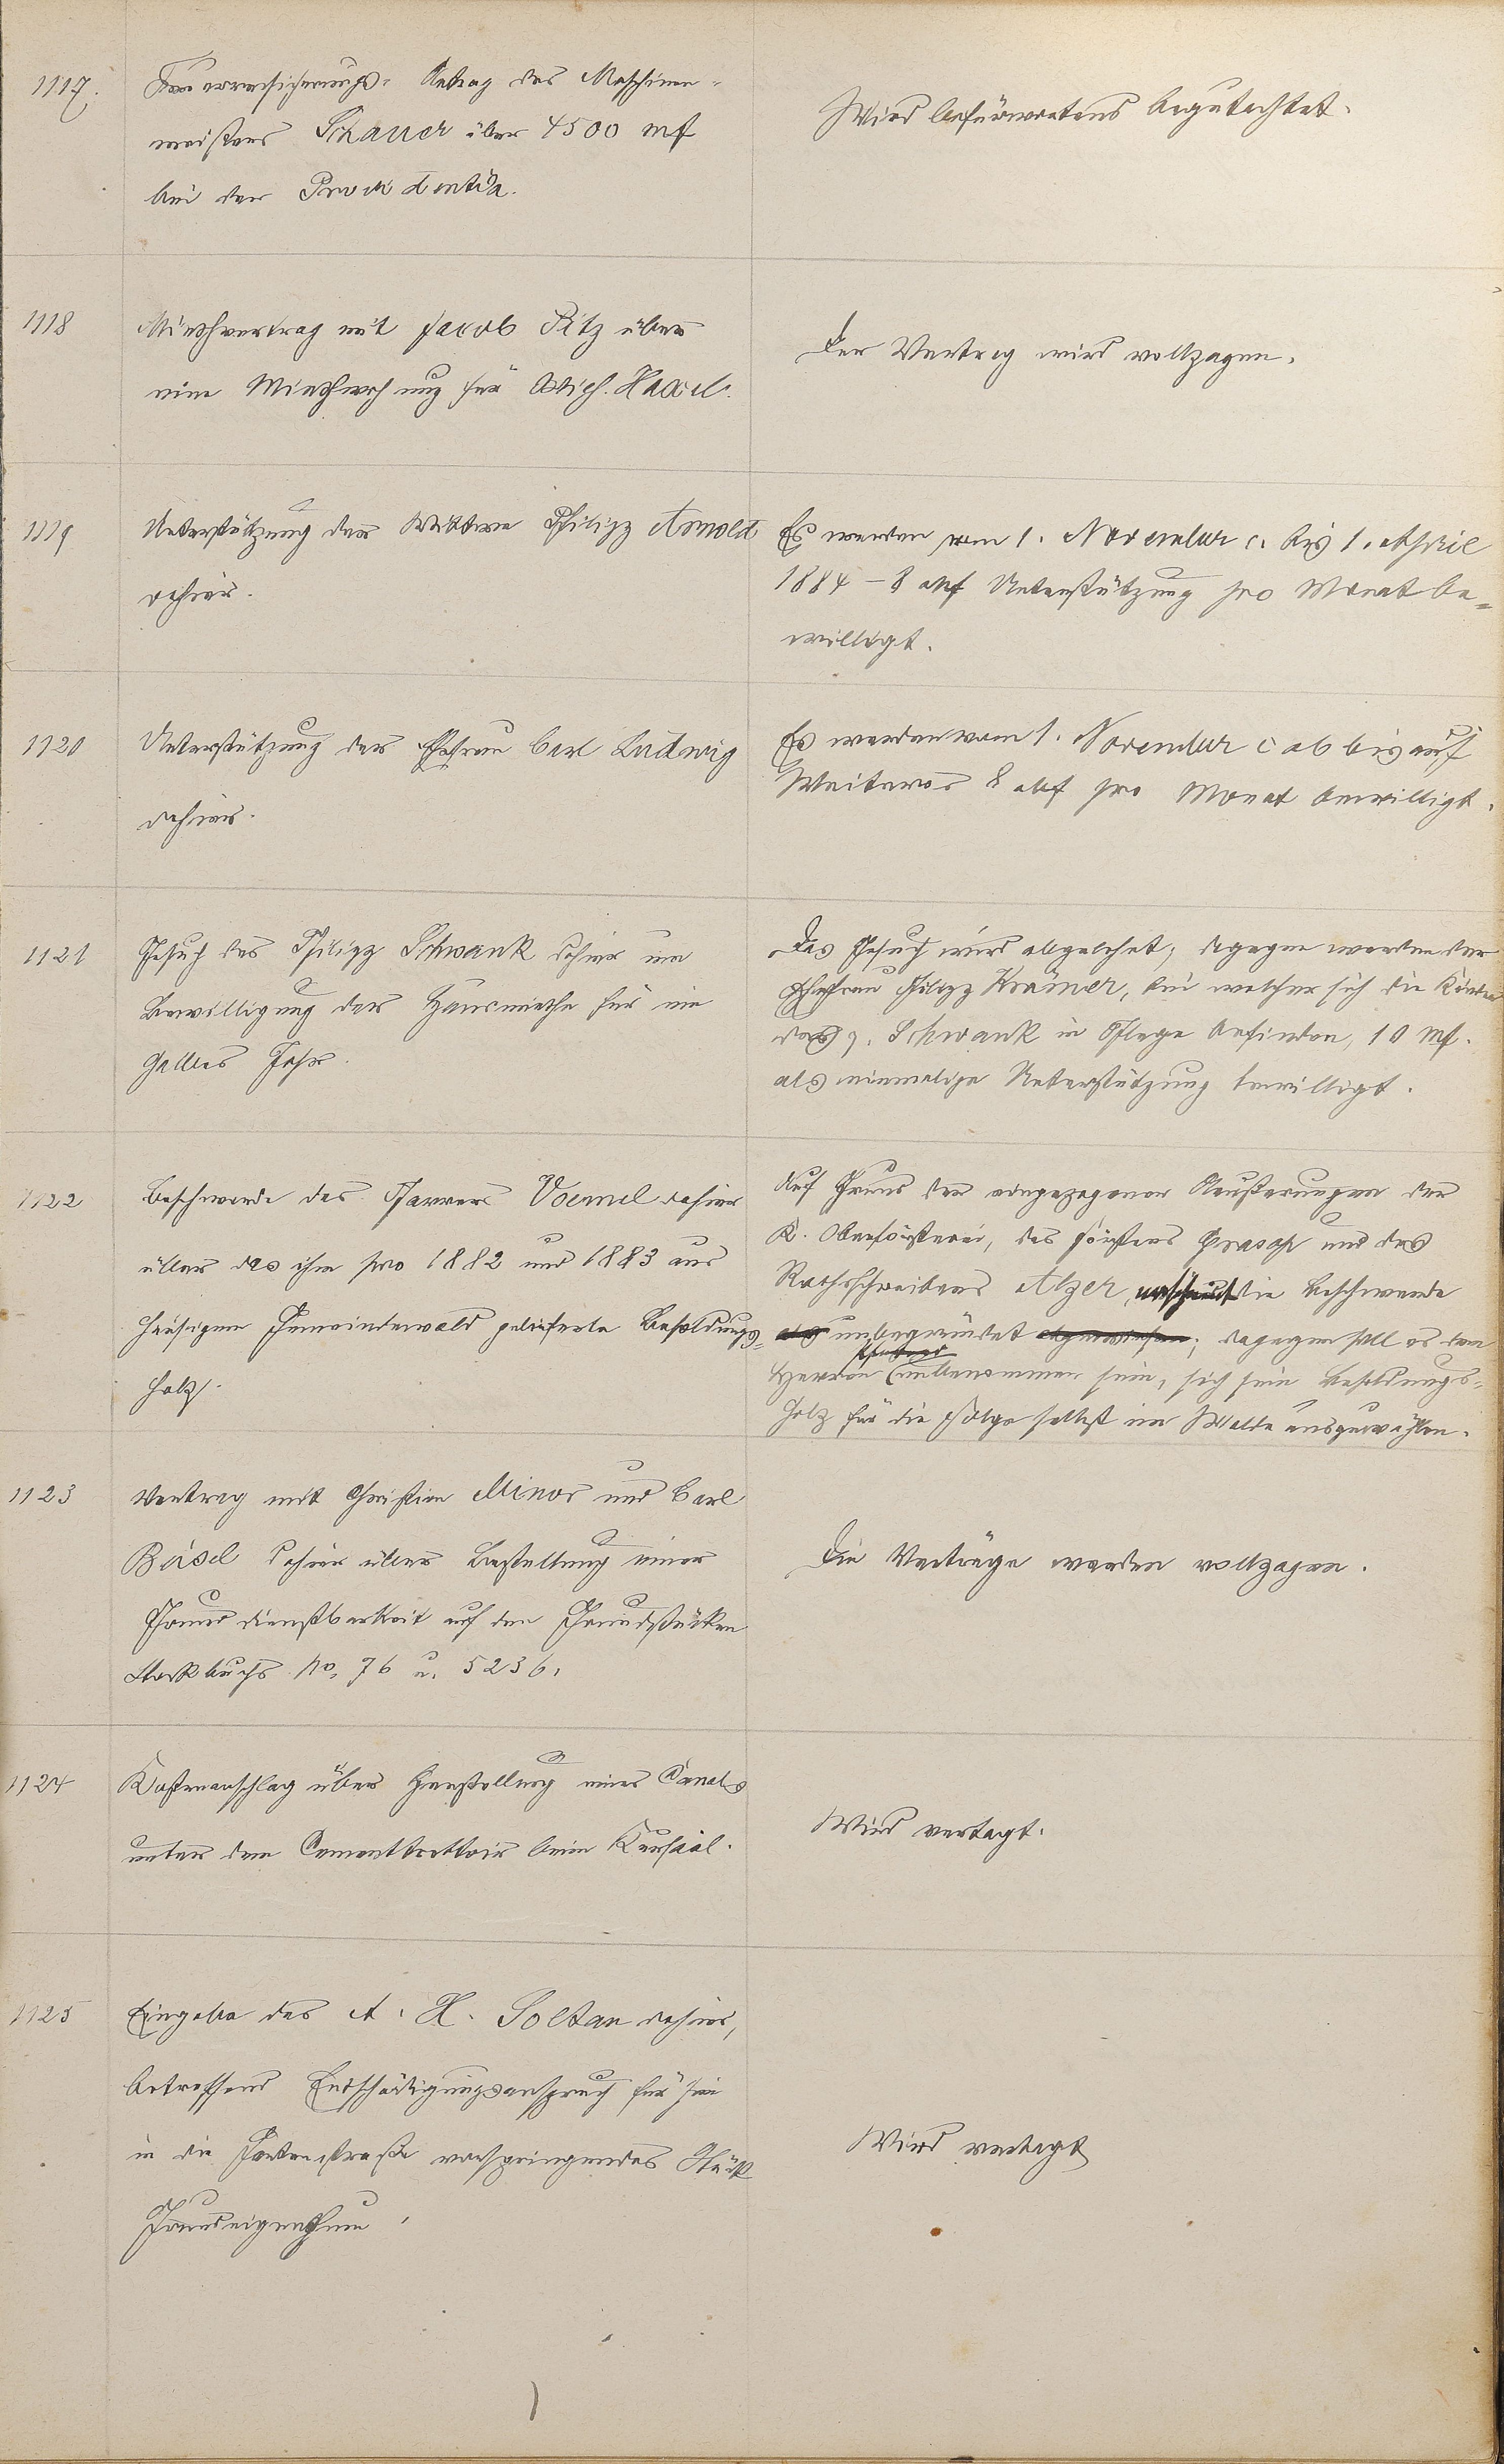 1117.
Feuerversicherungs-Antrag des Maschinen-
meisters Schauer über 4500 mf
bei der Providentia.
Wird befürwortend begutachtet.
1118
Miethvertrag mit Jacob Pitz über
eine Miethwohnung für Wich. Haxel.
Der Vertrag wird vollzogen.
1119
Unterstützung der Wittwe Philipp Arnold
dahier.
Es werden vom 1. November c. bis 1. April
1884 – 8 Mf Unterstützung pro Monat be-
willigt.
1120
Unterstützung der Ehefrau Carl Ludwig
dahier.
Es werden vom 1. November c ab bis auf
Weiteres 8 Mf pro Monat bewilligt.
1121
Gesuch des Philipp Schwank dahier um
Bewilligung der Hausmiethe für ein
halbes Jahr.
Das Gesuch wird abgelehnt, dagegen werden der
Ehefrau Philipp Krämer, bei welcher sich die Kinder
des p. Schwank in Pflege befinden, 10 Mf.
als einmalige Unterstützung bewilligt.
1122
Beschwerde des Pfarrers Voemel dahier
über das ihm pro 1882 und 1883 aus
hiesigem Gemeindewald gelieferte Besoldungs-
holz.
Auf Grund der eingezogenen Aeußerungen der
K. Oberförsterei, des Försters und des
Rathsschreibers Alzer, erscheint die Beschwerde
als unbegründet abgewiesen; dagegen soll es dem
Herrn Pfarrer unbenommen sein, sich sein Besoldungs-
holz für die Folge selbst im Walde auszuwählen.
1123
Vertrag mit Christian Minor und Carl
Beisel dahier über Bestellung einer
Grunddienstbarkeit auf den Grundstücken
Stockbuchs No. 76 u. 5236.
Die Verträge werden vollzogen.
1124
Kostenanschlag über Herstellung eines Canals
unter dem Cementtrottoir beim Kursaal.
Wird vertagt.
1125
Eingabe des A. H. Soltan dahier,
betreffend Entschädigungsanspruch für sein
in die Gartenstraße vorspringendes Stück
Grundeigenthum.
Wird vertagt